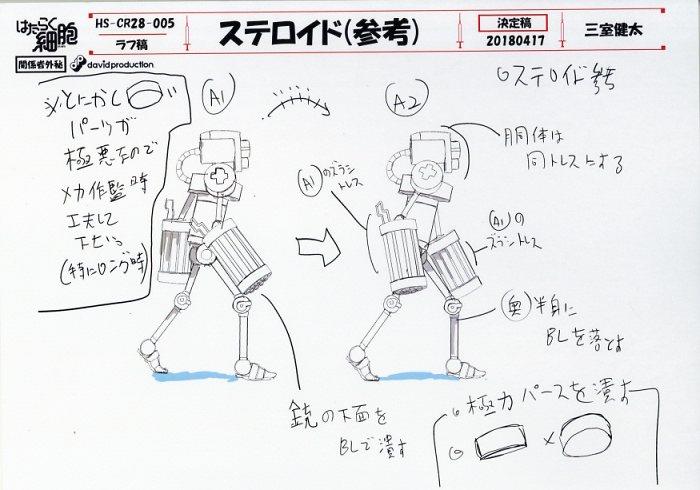 はたらく細胞
HS-CR28-005
ラフ稿
ステロイド(参考)
決定稿
20180417
三室健太
関係者外秘
davidproduction
A1
A2
○ステロイド参考
※とにかく
パーツが
極悪なので
メカ作監時
工夫して
下さい
(特にロング時)
胴体は
同トレスとする
A1のズラシ
トレス
A1の
ズラシトレス
奥半身に
BLを落とす
銃の下面を
BLで潰す
極力パースを潰す
○
×